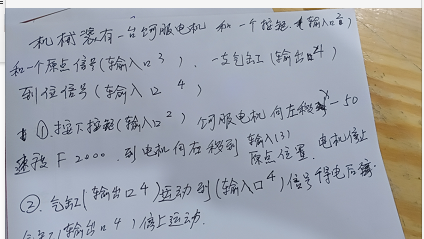 机械器有一台伺服电机 和一个按钮(输入口2)
和一个原点信号(输入口3)、一支气缸(输出口4)
到位信号(输入口4)
①.按下按钮(输入口2) 伺服电机向左移 -50
速段F2000.到电机向右移到 输入(3) 原点位置.电机停止
②.气缸(输出口4)运动到(输入口4)信号得电后
气缸(输出口4)停止运动.